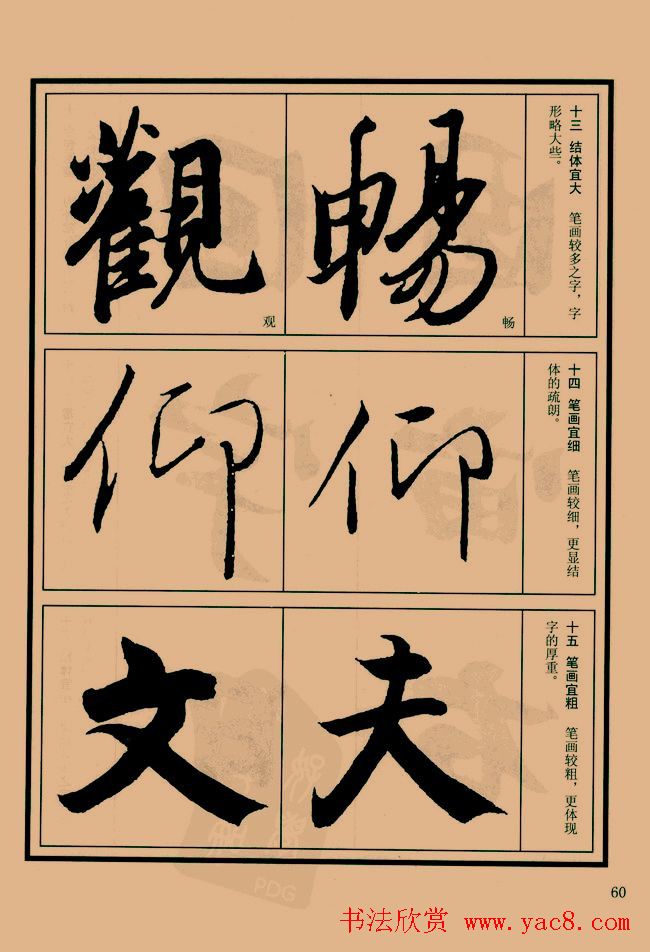 十三 结体宜大 笔画较多之字，字
形略大些。
暢
畅
觀
观
十四 笔画宜细 笔画较细，更显结
体的疏朗。
仰
仰
十五 笔画宜粗 笔画较粗，更体现
字的厚重。
夫
文
PDG
60
书法欣赏 www.yac8.com